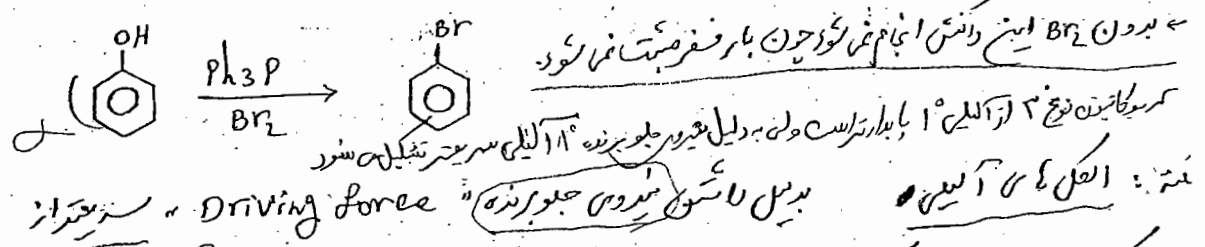 OH Ph3P Br2 Br
← بدون Br2 این واکنش انجام نمی شود چون بار فسفر مثبت نمی شود.
کربوکاتیون نوع ۳ از آلیلی 1° پایدارتر است ولی به دلیل نیروی جلو برنده 1° آلیلی سریعتر تشکیل می شود
نکته: الکل های آلیلی بدلیل داشتن نیروی جلو برنده "Driving force" سریعتر از